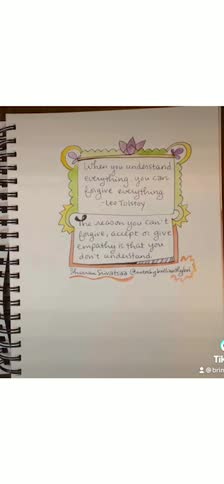 When you understand
everything you can
forgive everything
- Leo Tolstoy
The reason you can't
forgive, accept or give
empathy is that you
don't understand
Tik
@brin